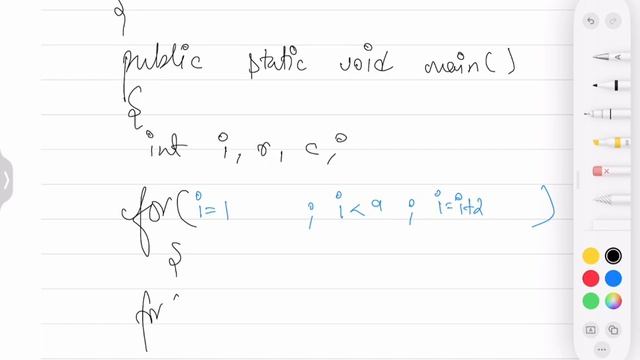 {
public static void main()
{
int i, r, c;
for( i=1 ; i<9 ; i=i+2 )
{
for